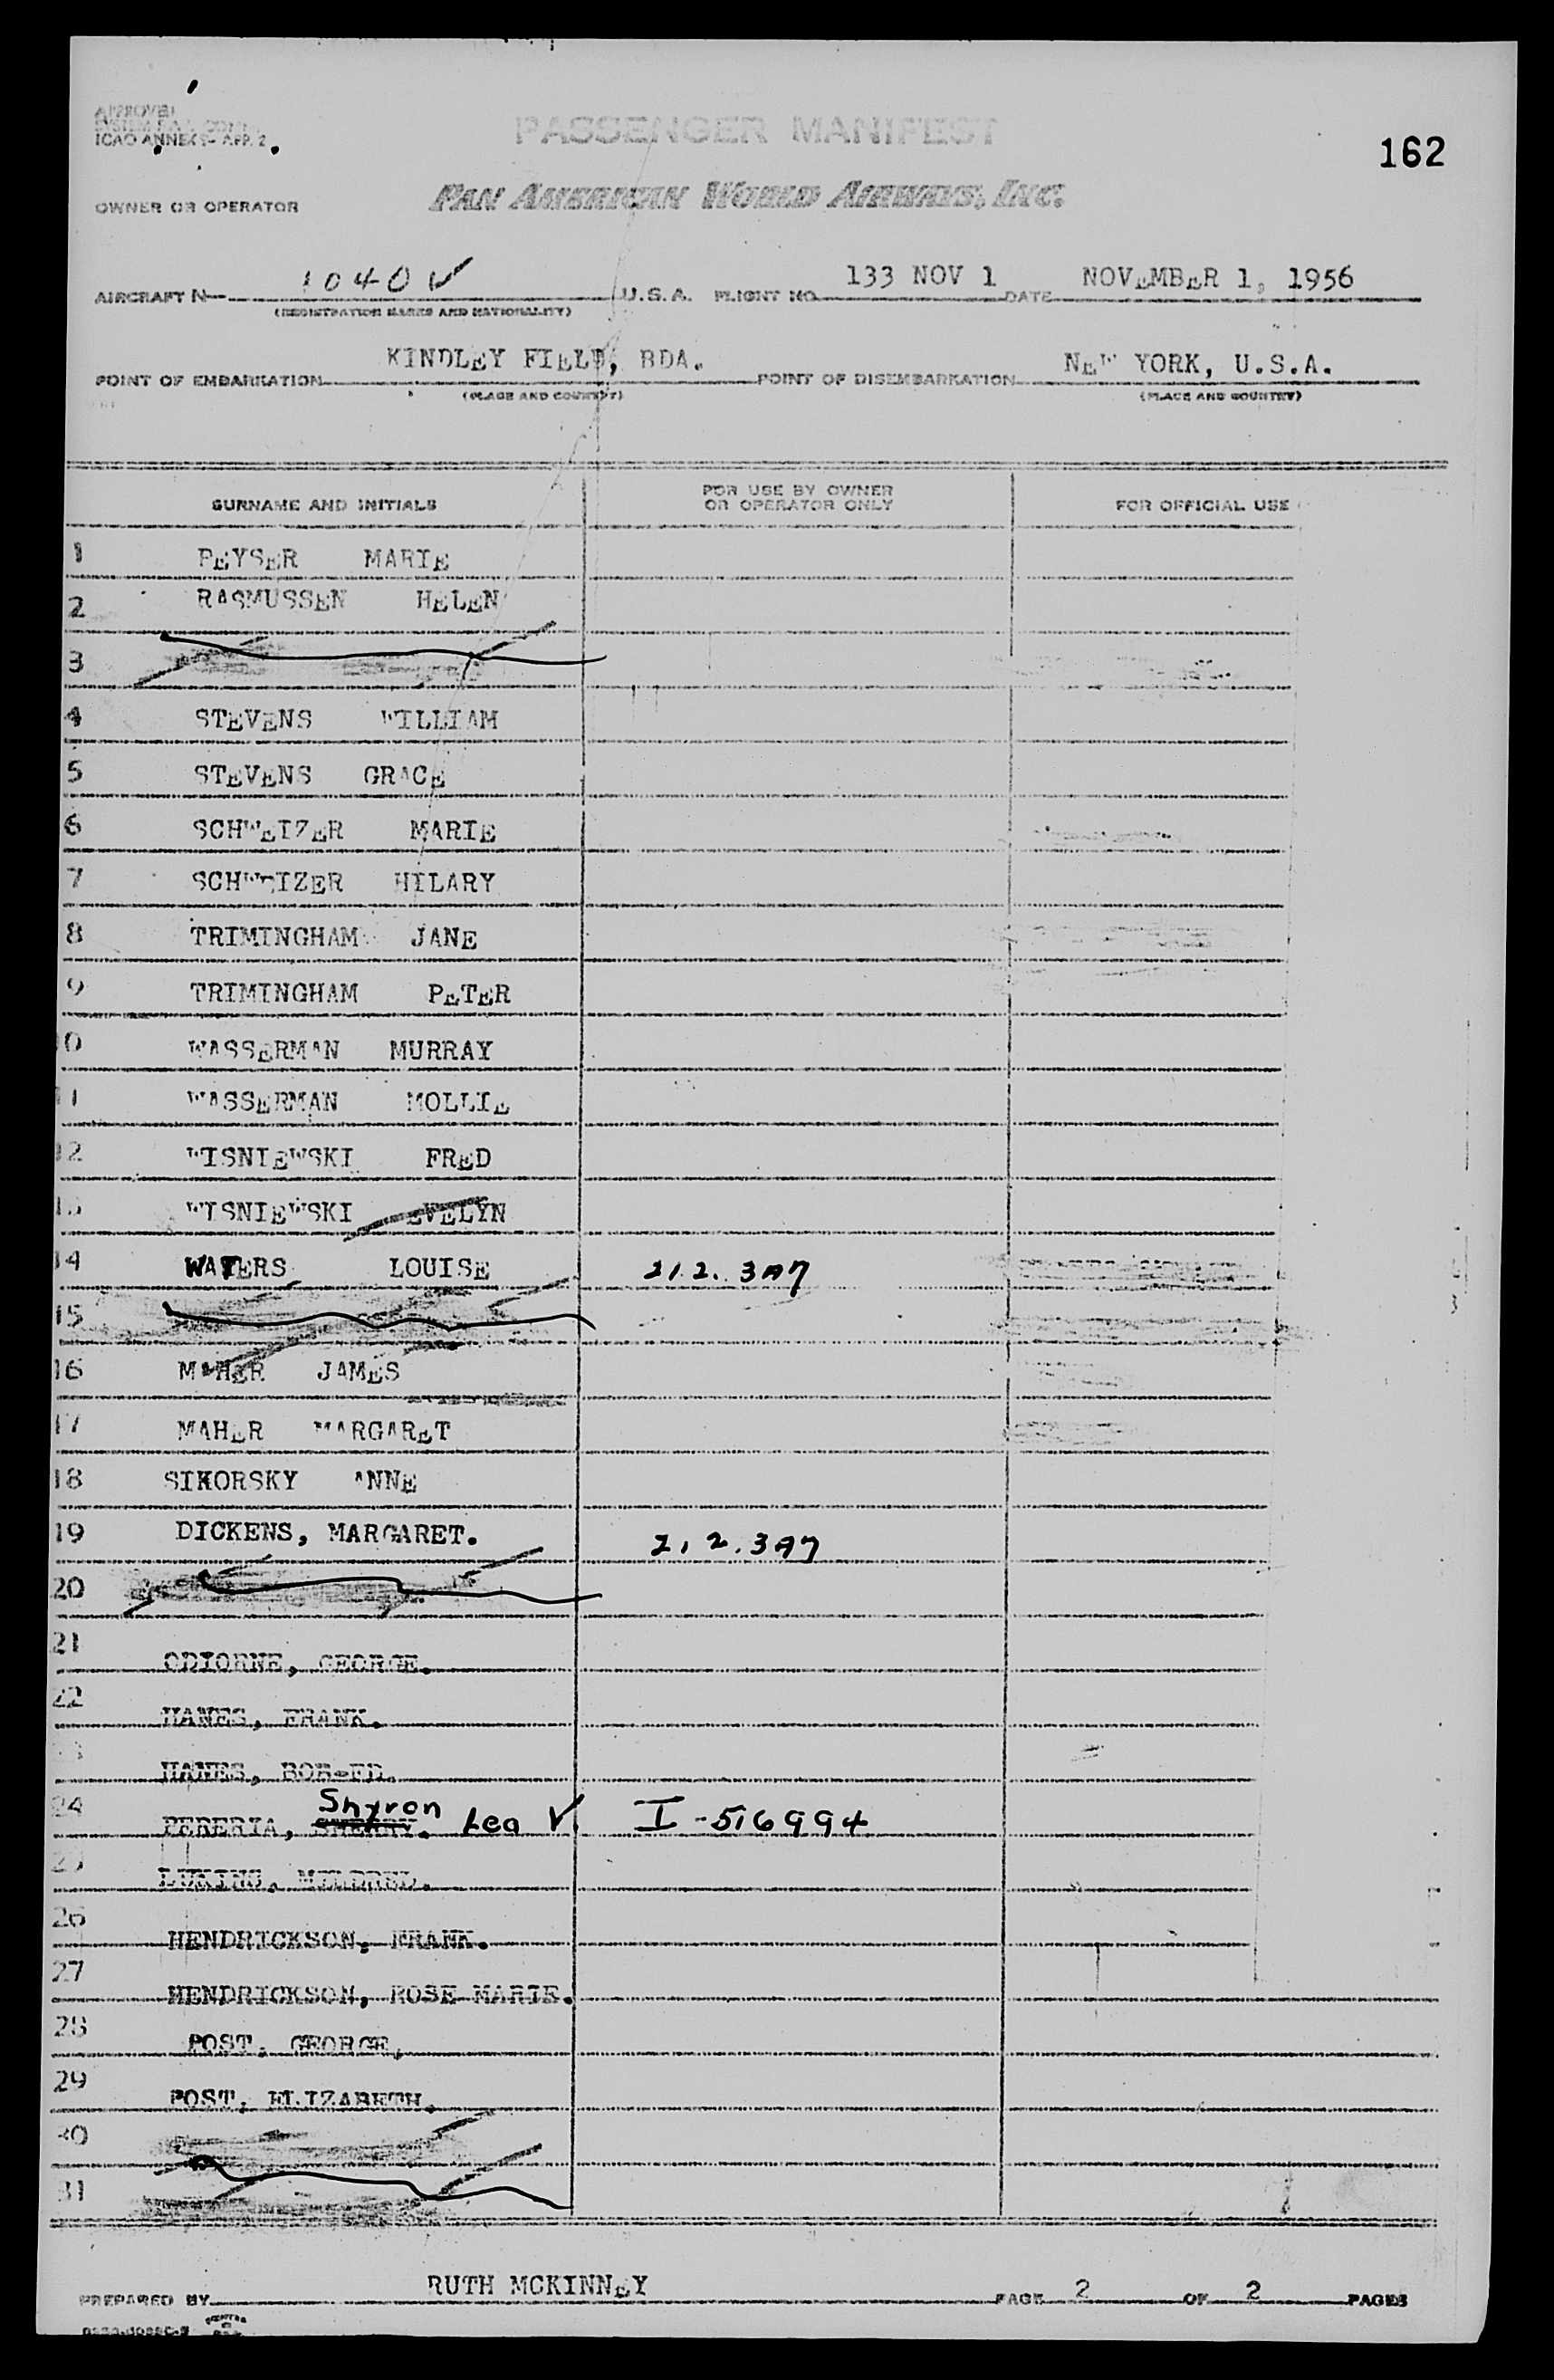 APPROVED
ICAO ANNEX 9- APP. 2
PASSENGER MANIFEST
162
OWNER OR OPERATOR
PAN AMERICAN WORLD AIRWAYS, INC.
AIRCRAFT N 1040V U.S.A. FLIGHT NO. 133 NOV 1 DATE NOVEMBER 1, 1956
(REGISTRATION MARKS AND NATIONALITY)
POINT OF EMBARKATION KINDLEY FIELD, BDA. POINT OF DISEMBARKATION NEW YORK, U.S.A.
(PLACE AND COUNTRY) (PLACE AND COUNTRY)
SURNAME AND INITIALS FOR USE BY OWNER OR OPERATOR ONLY FOR OFFICIAL USE
1 PEYSER MARIE
2 RASMUSSEN HELEN
3
4 STEVENS WILLIAM
5 STEVENS GRACE
6 SCHWEIZER MARIE
7 SCHWEIZER HILARY
8 TRIMINGHAM JANE
9 TRIMINGHAM PETER
10 WASSERMAN MURRAY
11 WASSERMAN MOLLIE
12 WISNIEWSKI FRED
13 WISNIEWSKI EVELYN
14 WATERS LOUISE 212.3A7
15
16 MAHER JAMES
17 MAHER MARGARET
18 SIKORSKY ANNE
19 DICKENS, MARGARET. 212.3A7
20
21 ODIORNE, GEORGE.
22 HANES, FRANK.
23 HANES, BOB-ED.
24 PERERIA, SHERRY. Shyron Lea V. I-516994
25 LUKINS, MILDRED.
26 HENDRICKSON, FRANK.
27 HENDRICKSON, ROSE MARIE.
28 POST, GEORGE,
29 POST, ELIZABETH.
30
31
PREPARED BY RUTH MCKINNEY PAGE 2 OF 2 PAGES